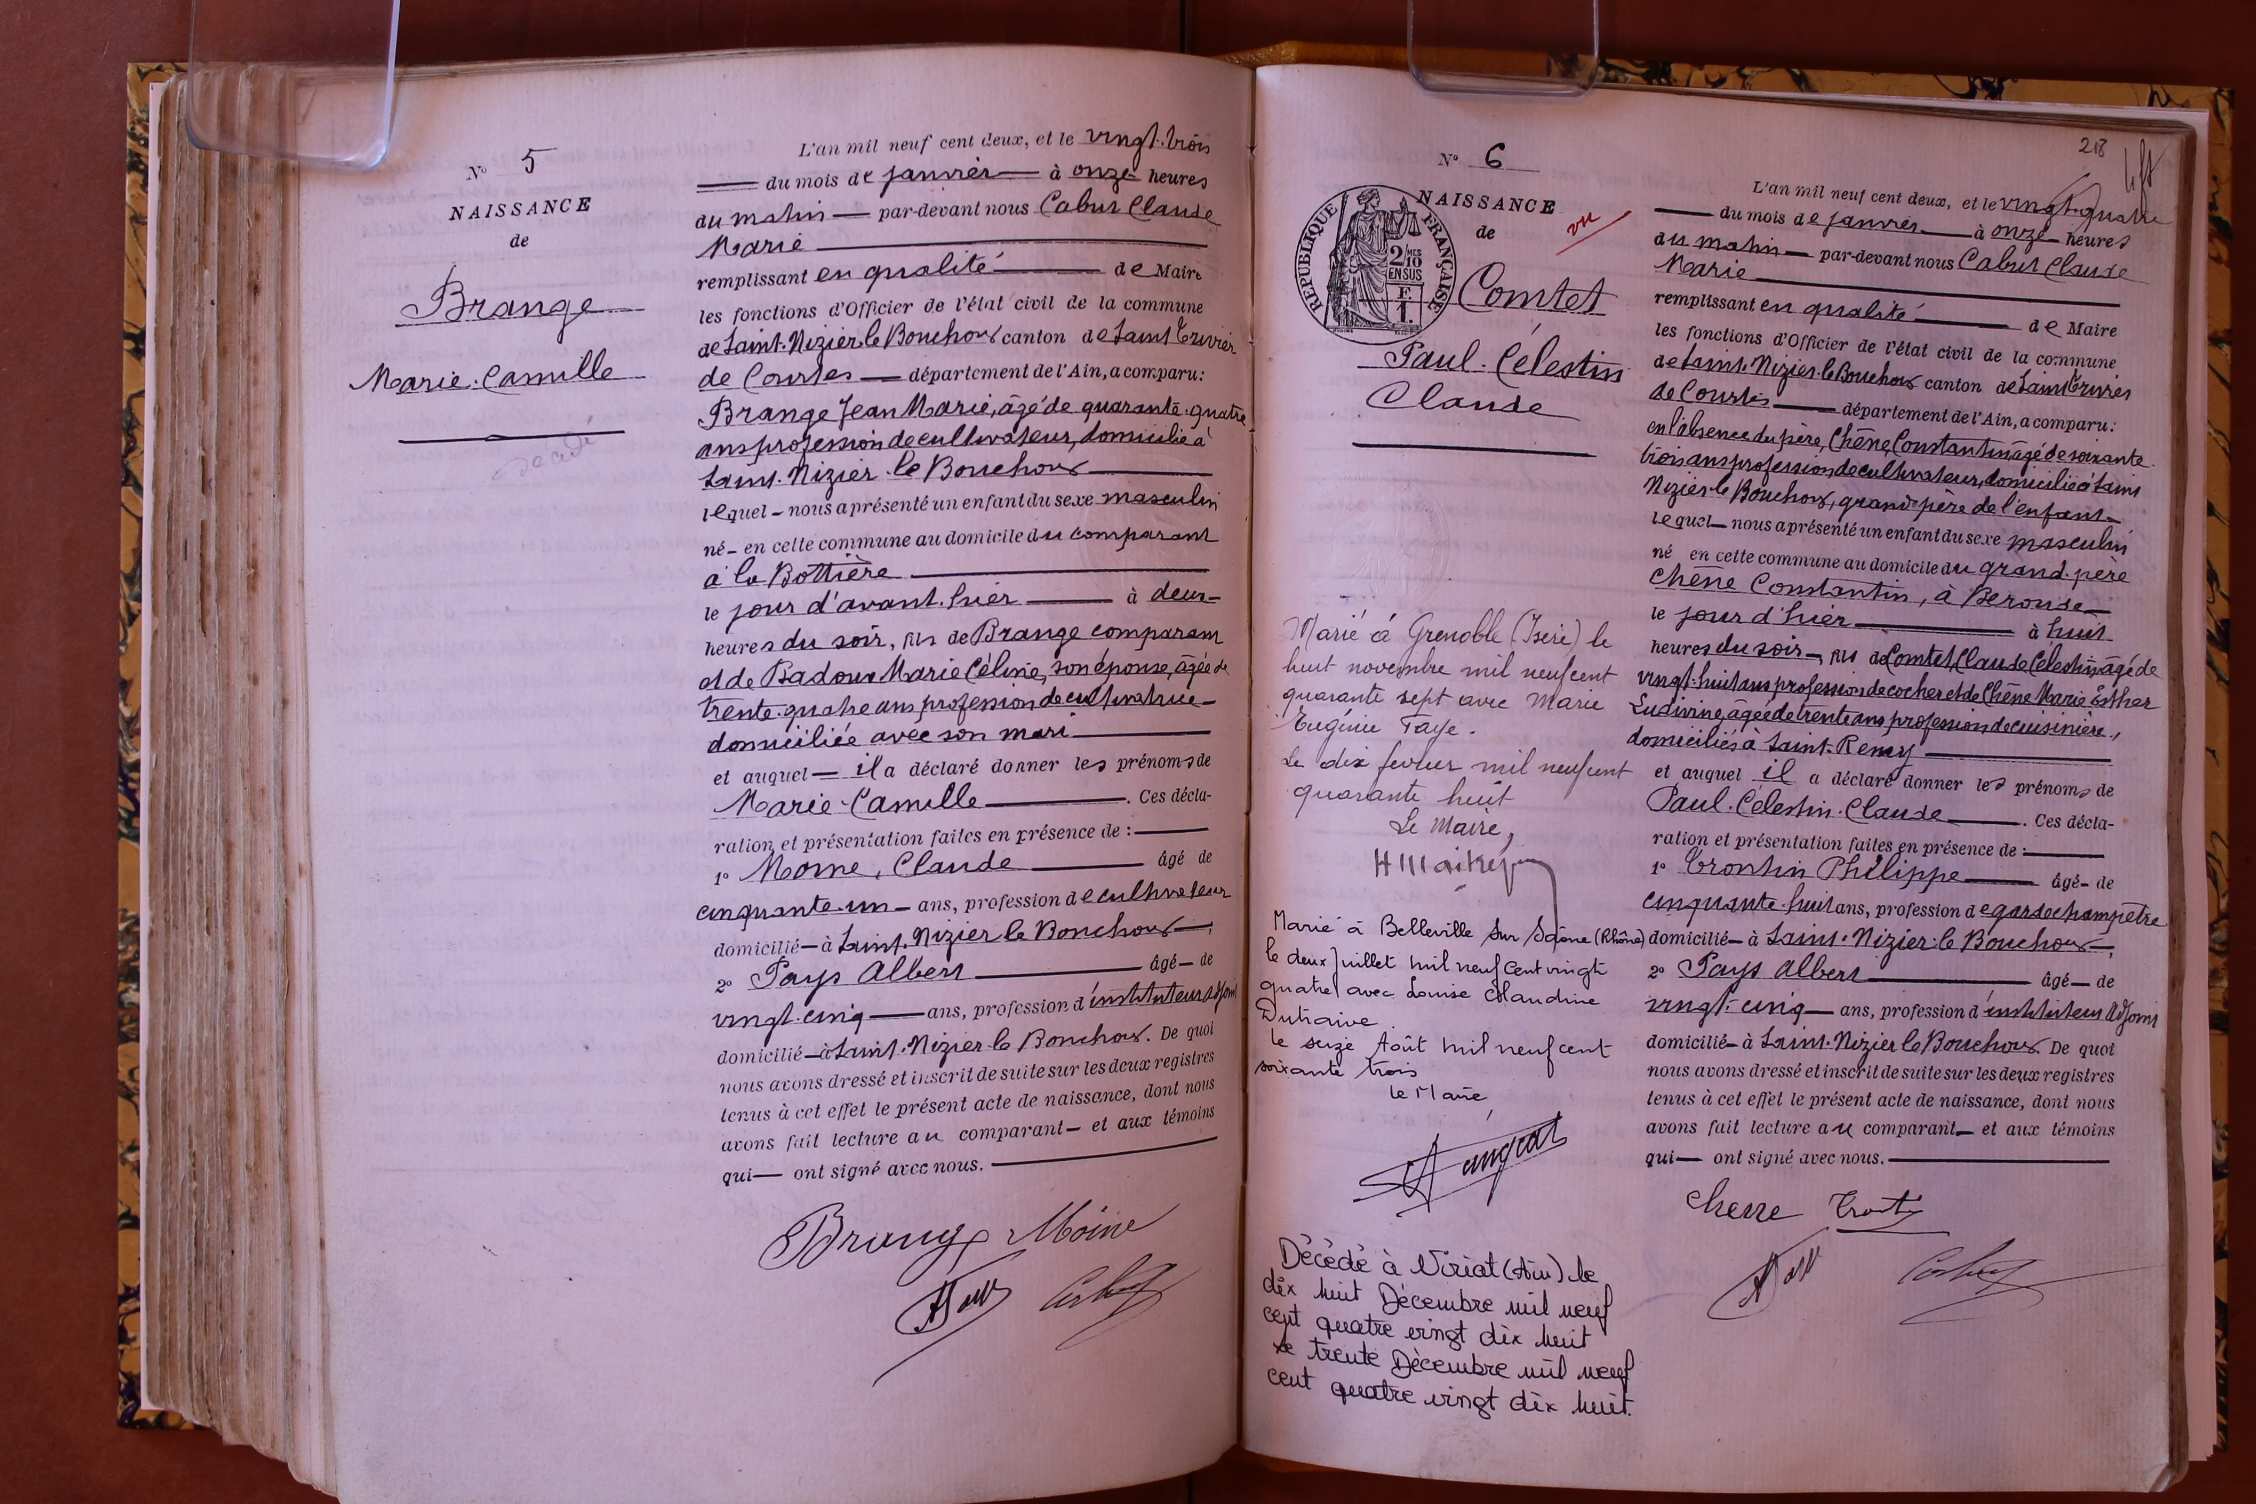 N° 5
NAISSANCE
de
Brange
Marie-Camille
L'an mil neuf cent deux, et le vingt-trois
du mois de janvier à onze heures
du matin par-devant nous Cabut Claude
Marie
remplissant en qualité de Maire
les fonctions d'Officier de l'état civil de la commune
de Saint-Nizier-le Bouchoux canton de Saint Trivier
de Courtes département de l'Ain, a comparu:
Brange Jean Marie, âgé de quarante-quatre
ans profession de cultivateur, domicilié à
Saint-Nizier-le Bouchoux
lequel nous a présenté un enfant du sexe masculin
né en cette commune au domicile du comparant
à la Bottière
le jour d'avant-hier à deux
heures du soir, fils de Brange comparant
et de Badoux Marie Céline, son épouse, âgée de
trente-quatre ans profession de cultivatrice
domiciliée avec son mari
et auquel il a déclaré donner les prénoms de
Marie-Camille. Ces décla-
ration et présentation faites en présence de :
1° Moine, Claude âgé de
cinquante-un ans, profession de cultivateur
domicilié à Saint-Nizier le Bouchoux,
2° Pays Albert âgé de
vingt-cinq ans, profession d'instituteur adjoint
domicilié à Saint-Nizier-le Bouchoux. De quoi
nous avons dressé et inscrit de suite sur les deux registres
tenus à cet effet le présent acte de naissance, dont nous
avons fait lecture au comparant et aux témoins
qui ont signé avec nous.
Brange Moine
218
N° 6
NAISSANCE
de
vu
RÉPUBLIQUE FRANÇAISE
2/10
EN SUS
F.
1.
Comtet
Paul-Célestin
Claude
Marié à Grenoble (Isère) le
huit novembre mil neuf cent
quarante sept avec Marie
Eugénie Faye.
Le dix fevrier mil neuf cent
quarante huit
Le Maire,
Marié à Belleville sur Saône (Rhône)
le deux Juillet mil neuf cent vingt
quatre avec Louise Claudine
Dutraive.
le seize Août mil neuf cent
soixante trois
le Maire,
Décédé à Viriat (Ain) le
dix huit Décembre mil neuf
cent quatre vingt dix huit
Le trente Décembre mil neuf
cent quatre vingt dix huit.
L'an mil neuf cent deux, et le vingt-quatre
du mois de janvier à onze heures
du matin par-devant nous Cabut Claude
Marie
remplissant en qualité de Maire
les fonctions d'Officier de l'état civil de la commune
de Saint-Nizier-le Bouchoux canton de Saint Trivier
de Courtes département de l'Ain, a comparu:
en l'absence du père, Chêne, Constantin âgé de soixante-
trois ans profession de cultivateur, domicilié à Saint
Nizier-le Bouchoux, grand-père de l'enfant
lequel nous a présenté un enfant du sexe masculin
né en cette commune au domicile du grand-père
Chêne Constantin, à Berouse
le jour d'hier à huit
heures du soir, fils de Comtet, Claude Célestin, âgé de
vingt-huit ans profession de cocher et de Chêne Marie Esther
Ludivine, âgée de trente ans profession de cuisinière,
domiciliés à Saint-Remy
et auquel il a déclaré donner les prénoms de
Paul-Célestin-Claude. Ces décla-
ration et présentation faites en présence de :
1° Trontin Philippe âgé de
cinquante-huit ans, profession de garde champêtre
domicilié à Saint-Nizier-le Bouchoux,
2° Pays Albert âgé de
vingt-cinq ans, profession d'instituteur adjoint
domicilié à Saint-Nizier le Bouchoux. De quoi
nous avons dressé et inscrit de suite sur les deux registres
tenus à cet effet le présent acte de naissance, dont nous
avons fait lecture au comparant et aux témoins
qui ont signé avec nous.
Chene